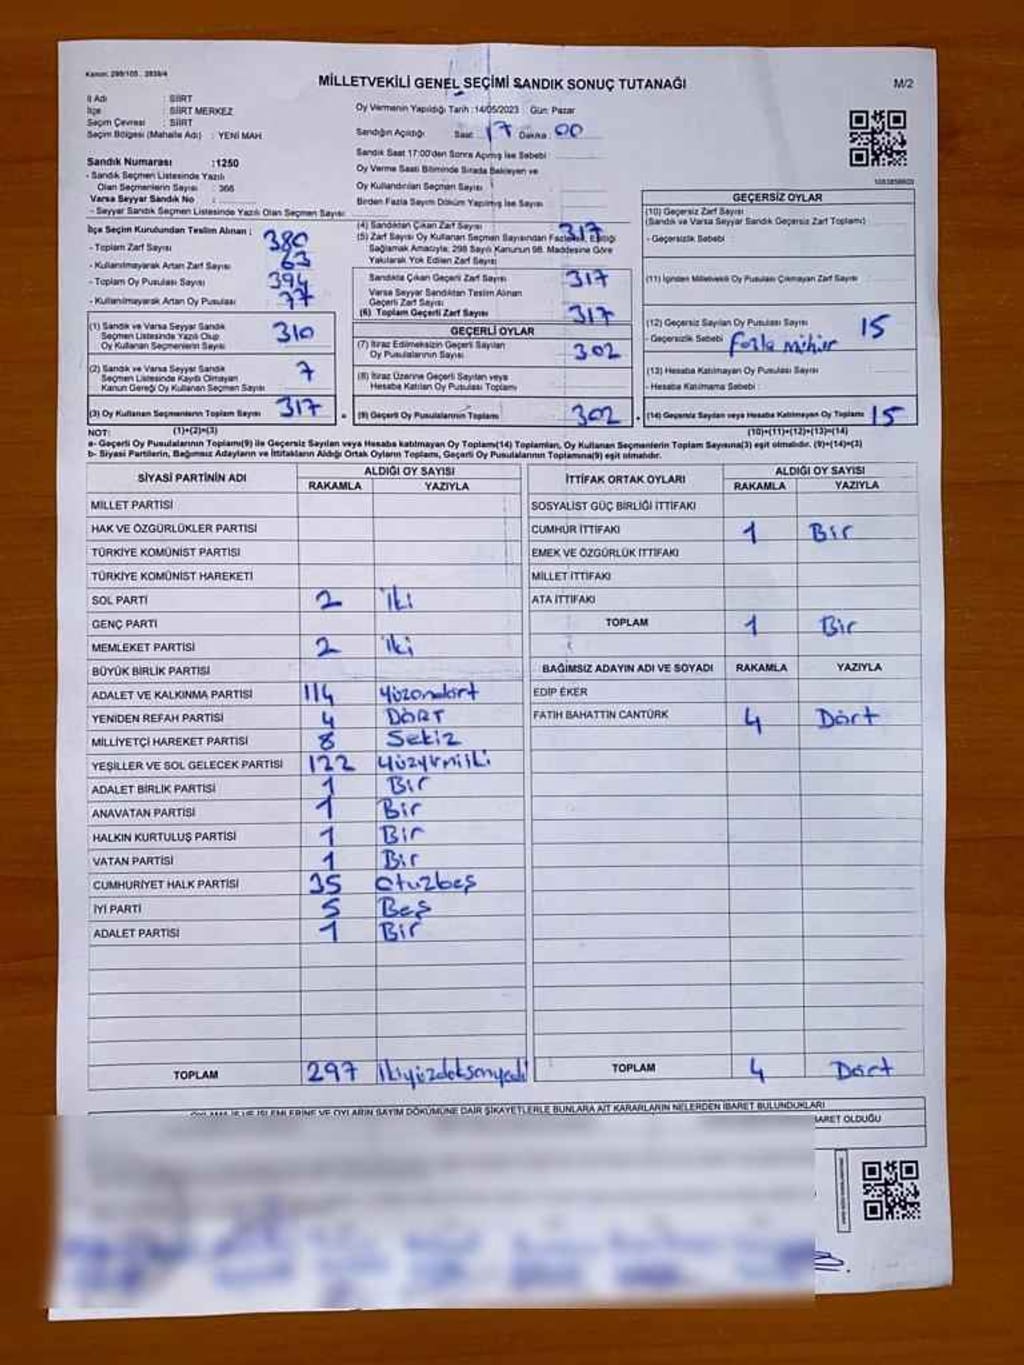 Kanun: 298/105 . 2839/4
MİLLETVEKİLİ GENEL SEÇİMİ SANDIK SONUÇ TUTANAĞI
M/2
İl Adı : SİİRT
İlçe : SİİRT MERKEZ
Seçim Çevresi : SİİRT
Seçim Bölgesi (Mahalle Adı) : YENİ MAH.
Oy Vermenin Yapıldığı Tarih :14/05/2023 Gün: Pazar
Sandığın Açıldığı Saat: 17 Dakika: 00
Sandık Saat 17:00'den Sonra Açılmış İse Sebebi :
Oy Verme Saati Bitiminde Sırada Bekleyen ve
Oy Kullandırılan Seçmen Sayısı
Birden Fazla Sayım Döküm Yapılmış İse Sayısı
Sandık Numarası :1250
- Sandık Seçmen Listesinde Yazılı
Olan Seçmenlerin Sayısı : 366
Varsa Seyyar Sandık No :
- Seyyar Sandık Seçmen Listesinde Yazılı Olan Seçmen Sayısı:
İlçe Seçim Kurulundan Teslim Alınan :
- Toplam Zarf Sayısı 380
- Kullanılmayarak Artan Zarf Sayısı 63
- Toplam Oy Pusulası 394
- Kullanılmayarak Artan Oy Pusulası 77
(1) Sandık ve Varsa Seyyar Sandık
Seçmen Listesinde Yazılı Olup
Oy Kullanan Seçmenlerin Sayısı 310
(2) Sandık ve Varsa Seyyar Sandık
Seçmen Listesinde Kaydı Olmayan
Kanun Gereği Oy Kullanan Seçmen Sayısı 7
(3) Oy Kullanan Seçmenlerin Toplam Sayısı 317
(4) Sandıktan Çıkan Zarf Sayısı 317
(5) Zarf Sayısı Oy Kullanan Seçmen Sayısından Fazla ise, Eşitliği
Sağlamak Amacıyla; 298 Sayılı Kanunun 98. Maddesine Göre
Yakılarak Yok Edilen Zarf Sayısı
Sandıkta Çıkan Geçerli Zarf Sayısı 317
Varsa Seyyar Sandıktan Teslim Alınan
Geçerli Zarf Sayısı
(6) Toplam Geçerli Zarf Sayısı 317
GEÇERLİ OYLAR
(7) İtiraz Edilmeksizin Geçerli Sayılan
Oy Pusulalarının Sayısı 302
(8) İtiraz Üzerine Geçerli Sayılan veya
Hesaba Katılan Oy Pusulası Toplamı
(9) Geçerli Oy Pusulalarının Toplamı 302
GEÇERSİZ OYLAR
(10) Geçersiz Zarf Sayısı
(Sandık ve Varsa Seyyar Sandık Geçersiz Zarf Toplamı)
- Geçersizlik Sebebi :
(11) İçinden Milletvekili Oy Pusulası Çıkmayan Zarf Sayısı
(12) Geçersiz Sayılan Oy Pusulası Sayısı 15
- Geçersizlik Sebebi fazla mihür
(13) Hesaba Katılmayan Oy Pusulası Sayısı
- Hesaba Katılmama Sebebi :
(14) Geçersiz Sayılan veya Hesaba Katılmayan Oy Toplamı 15
NOT: (1)+(2)=(3) (10)+(11)+(12)+(13)=(14)
a- Geçerli Oy Pusulalarının Toplamı(9) ile Geçersiz Sayılan veya Hesaba katılmayan Oy Toplamı(14) Toplamları, Oy Kullanan Seçmenlerin Toplam Sayısına(3) eşit olmalıdır. (9)+(14)=(3)
b- Siyasi Partilerin, Bağımsız Adayların ve İttifakların Aldığı Ortak Oyların Toplamı, Geçerli Oy Pusulalarının Toplamına(9) eşit olmalıdır.
SİYASİ PARTİNİN ADI ALDIĞI OY SAYISI
RAKAMLA YAZIYLA
MİLLET PARTİSİ
HAK VE ÖZGÜRLÜKLER PARTİSİ
TÜRKİYE KOMÜNİST PARTİSİ
TÜRKİYE KOMÜNİST HAREKETİ
SOL PARTİ 2 iki
GENÇ PARTİ
MEMLEKET PARTİSİ 2 iki
BÜYÜK BİRLİK PARTİSİ
ADALET VE KALKINMA PARTİSİ 114 Yüzondört
YENİDEN REFAH PARTİSİ 4 DÖRT
MİLLİYETÇİ HAREKET PARTİSİ 8 Sekiz
YEŞİLLER VE SOL GELECEK PARTİSİ 122 Yüzyirmiiki
ADALET BİRLİK PARTİSİ 1 Bir
ANAVATAN PARTİSİ 1 Bir
HALKIN KURTULUŞ PARTİSİ 1 Bir
VATAN PARTİSİ 1 Bir
CUMHURİYET HALK PARTİSİ 35 otuzbeş
İYİ PARTİ 5 Beş
ADALET PARTİSİ 1 Bir
TOPLAM 297 ikiyüzdoksanyedi
İTTİFAK ORTAK OYLARI ALDIĞI OY SAYISI
RAKAMLA YAZIYLA
SOSYALİST GÜÇ BİRLİĞİ İTTİFAKI
CUMHUR İTTİFAKI 1 Bir
EMEK VE ÖZGÜRLÜK İTTİFAKI
MİLLET İTTİFAKI
ATA İTTİFAKI
TOPLAM 1 Bir
BAĞIMSIZ ADAYIN ADI VE SOYADI RAKAMLA YAZIYLA
EDİP EKER
FATİH BAHATTİN CANTÜRK 4 Dört
TOPLAM 4 Dört
OYLAMA İŞ VE İŞLEMLERİNE VE OYLARIN SAYIM DÖKÜMÜNE DAİR ŞİKAYETLERLE BUNLARA AİT KARARLARIN NELERDEN İBARET BULUNDUKLARI
BARET OLDUĞU